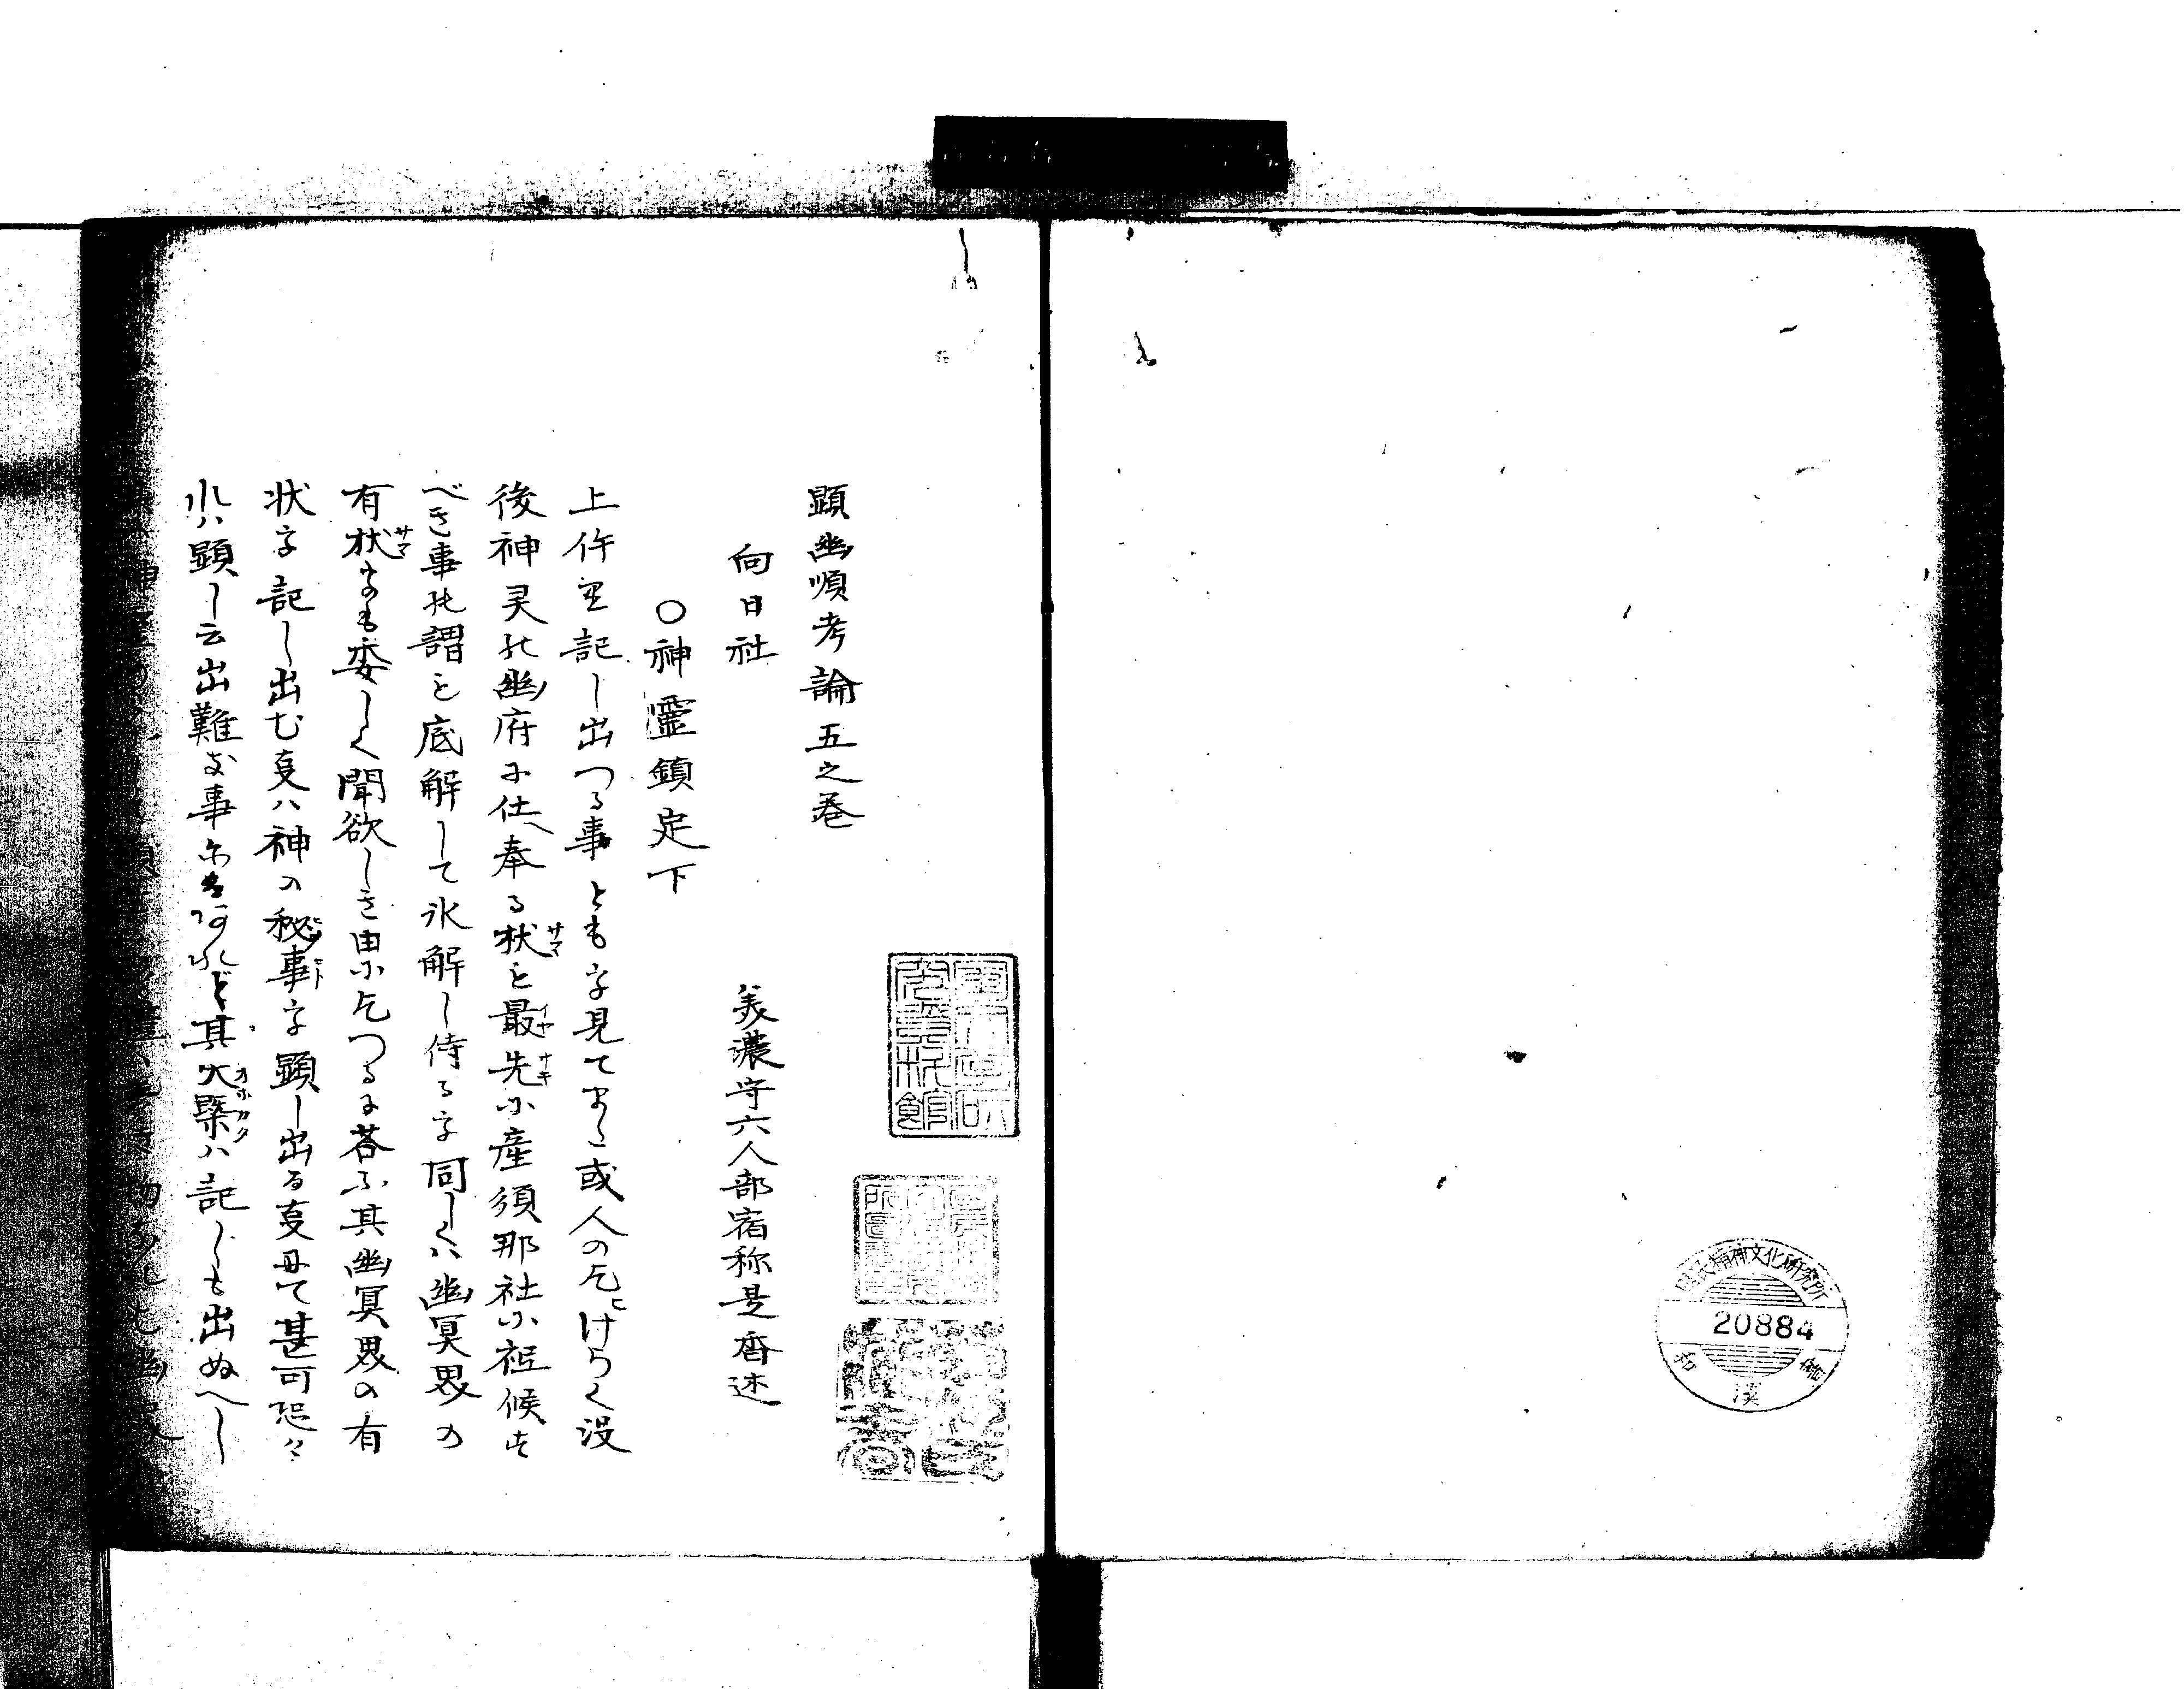 国民精神文化研究所
20884
和漢書
顕幽順考論五之巻
向日社
美濃守六人部宿祢是香述
○神霊鎮定下
上件里記し出つる事ともを見てまゝ或人の乞けらく没
後神灵乃幽府に仕奉る状を最先に産須那社に祗候す
サマ
イヤサキ
べき事乃謂を底解して氷解し侍るを同しくは幽冥界の
有状をも委しく聞欲しき由に乞つるに荅ふ其幽冥界の有
サマ
状を記し出む叓ハ神の秘事を顕し出る叓にて甚可恐々
れハ顕し云出難き事にはあれど其大槩ハ記しも出ぬへし
オホカタ